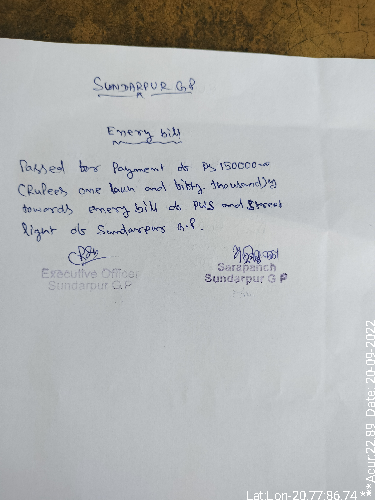 SUNDARPUR G.P
Enery bill
Passed for Payment of Rs 150000=00
(Rupees one lakh and fifty thousand)
towards enery bill of PWS and Street
light of Sundarpur G.P.
Executive Officer
Sundarpur G.P
Sarapanch
Sundarpur G P
Lat Lon-20.77:86.74***Acur 22.89 Date: 20-09-2022